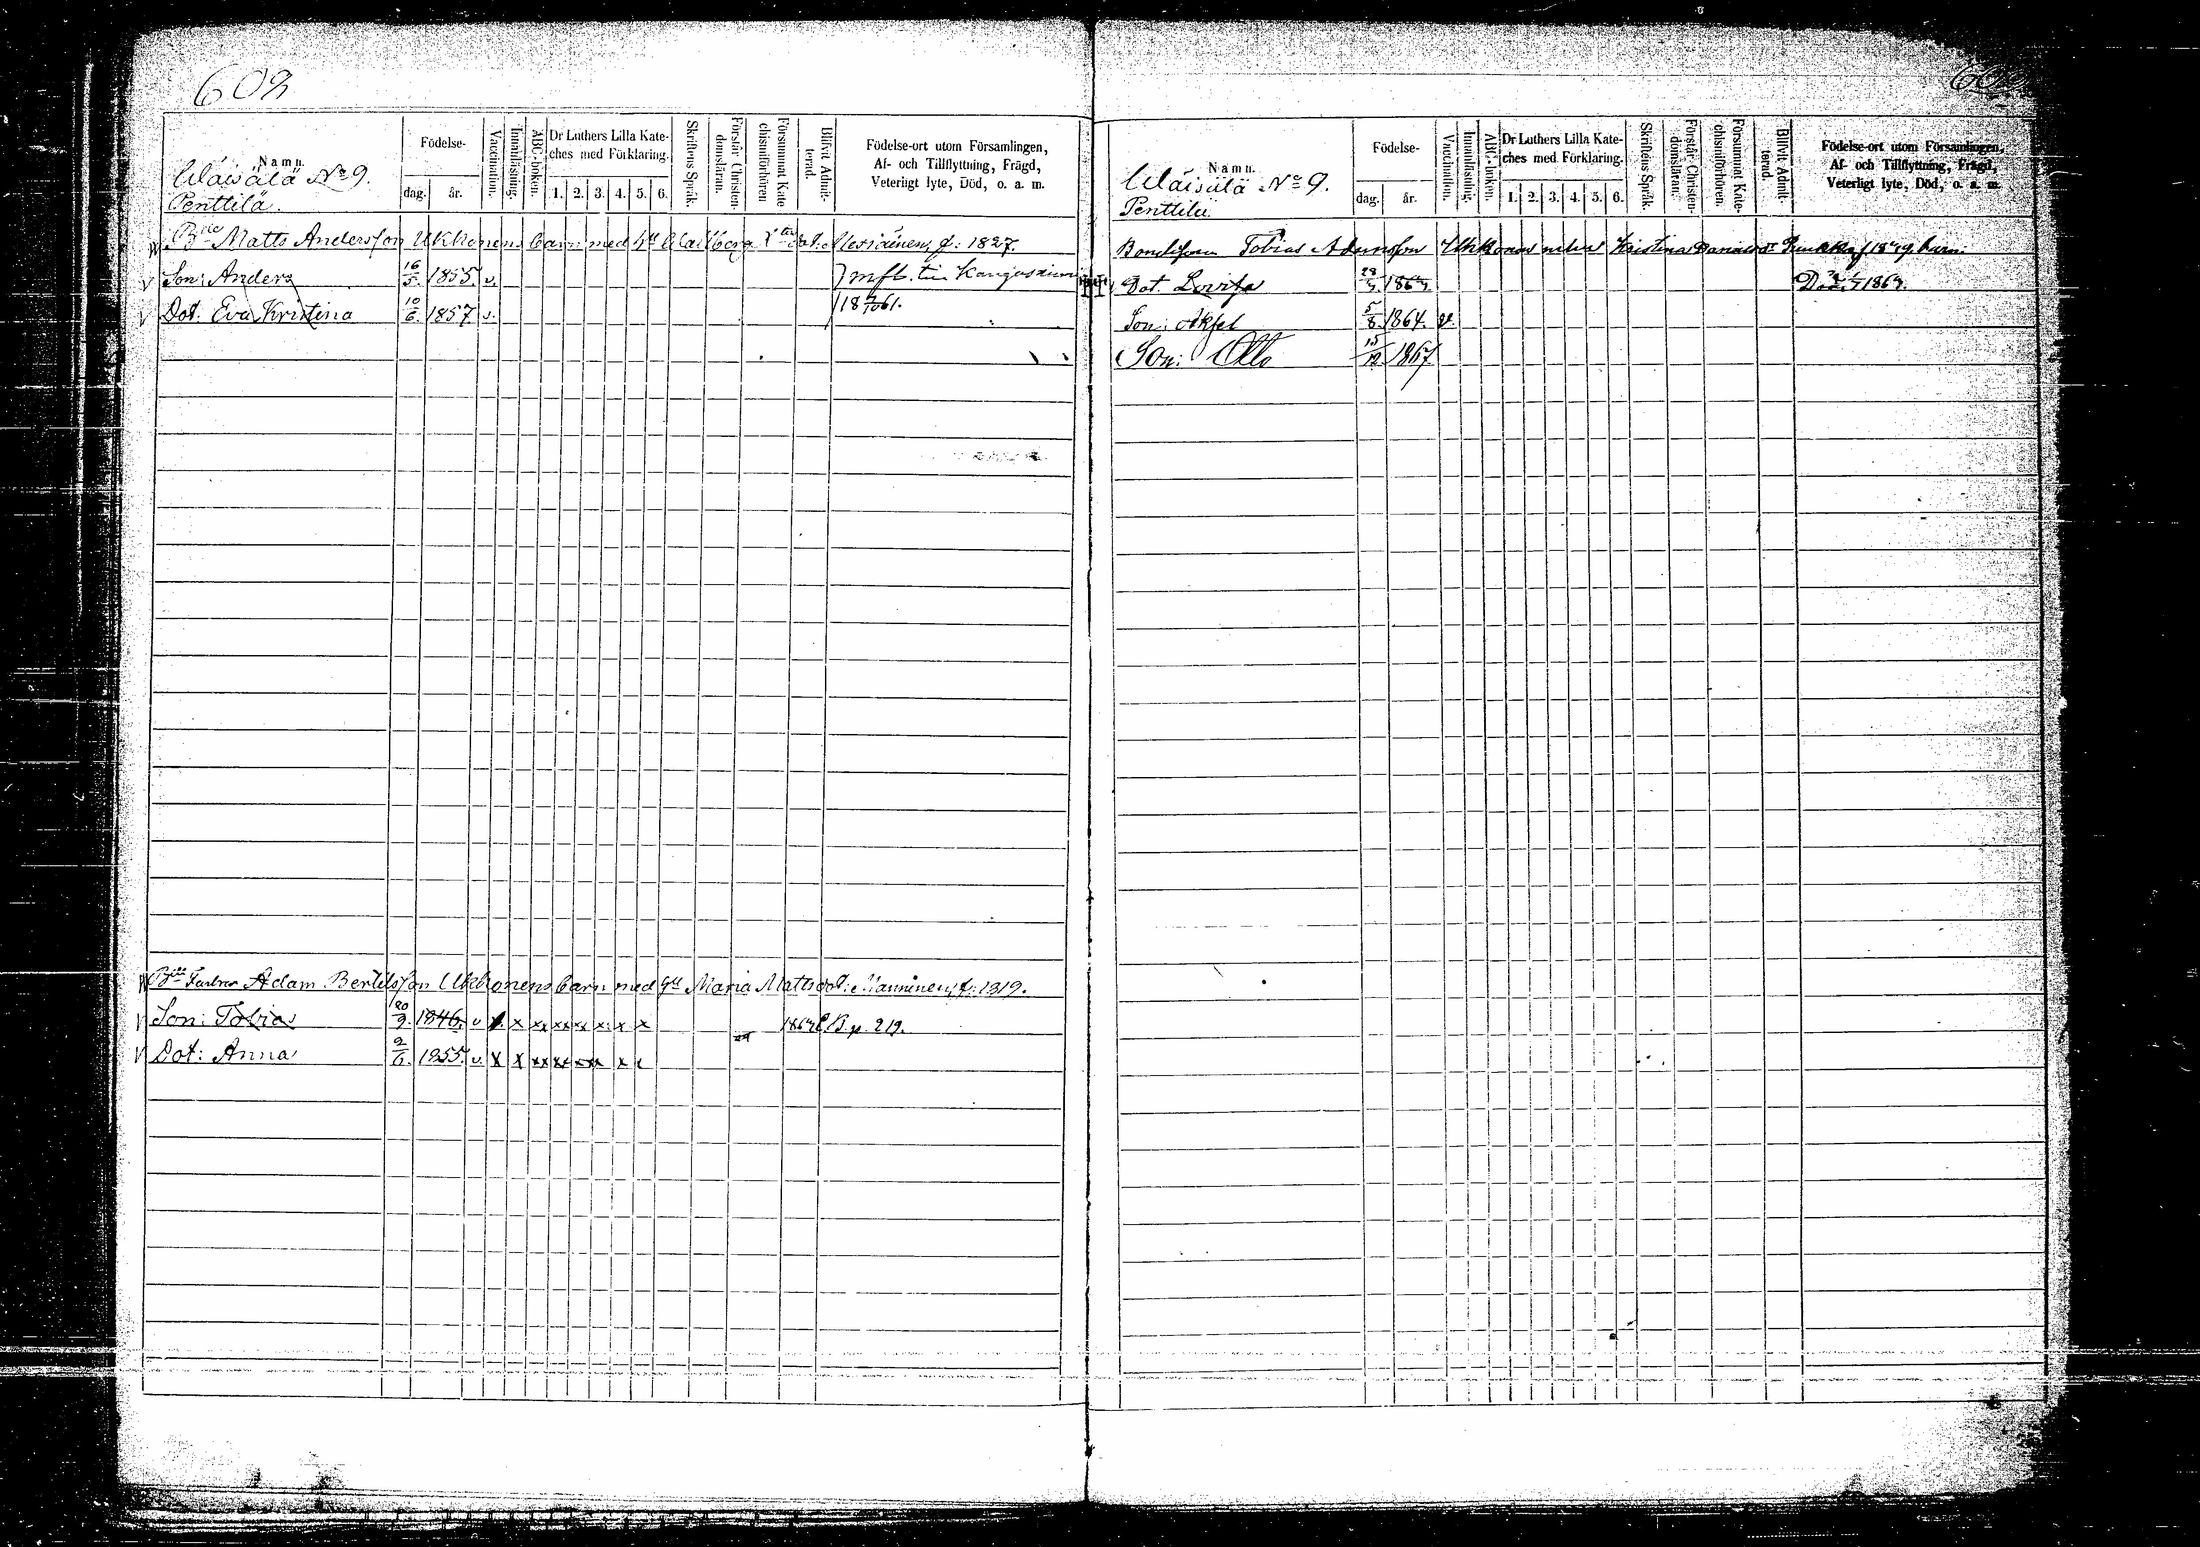 602
Namn.
Wäisälä No 9.
Penttilä.
Födelse-
dag. år.
Vaccination.
Innanläsning.
ABC-boken.
Dr Luthers Lilla Kate-
ches med Förklaring.
1. 2. 3. 4. 5. 6.
Skriftens Språk.
Förstår Christen-
domsläran.
Försummat Kate
chismiförhören
Blifvit Admit-
terad.
Födelse-ort utom Församlingen,
Af- och Tillflyttning, Frägd,
Veterligt lyte, Död, o. a. m.
Matts Andersson Ukkonens barn med Walborg f: 1827.
Son: Anders 16/5. 1855. v. mfb. till Kangasniemi
Dot. Eva Kristina 10/6. 1857. v.
Adam Bertilsson Ukkonens barn med Maria Mattsdot: Manninen, f: 1819.
Son: Tobias 20/9 1846. v x x xx xx xx x x x B. p. 219.
Dot: Anna 2/6. 1855. v. x x xx xx xx x
Namn.
Wäisälä No 9.
Penttilä
Födelse-
dag. år.
Vaccination.
Innanläsning.
ABC-boken.
Dr Luthers Lilla Kate-
ches med Förklaring.
1. 2. 3. 4. 5. 6.
Skriftens Språk.
Förstår Christen-
domsläran.
Försummat Kate-
chismiförhören.
Blifvit Admit-
terad.
Födelse-ort utom Församlingen,
Af- och Tillflyttning, Frägd,
Veterligt lyte, Död, o. a. m.
Bondesonen Tobias Adamsson Ukkonens Kristina barn:
Dot. Lovisa
Son: Aksel 5/8. 1864. v.
Son: Otto 15/12 1867